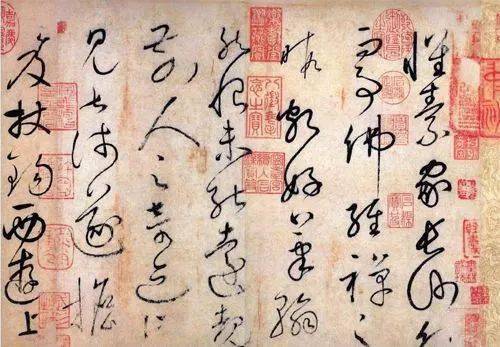 懷素家長沙幼
事佛經禪之
暇頗好筆翰
然恨未能遠覩
前人之奇迹所
見甚淺遂擔
笈杖錫西遊上